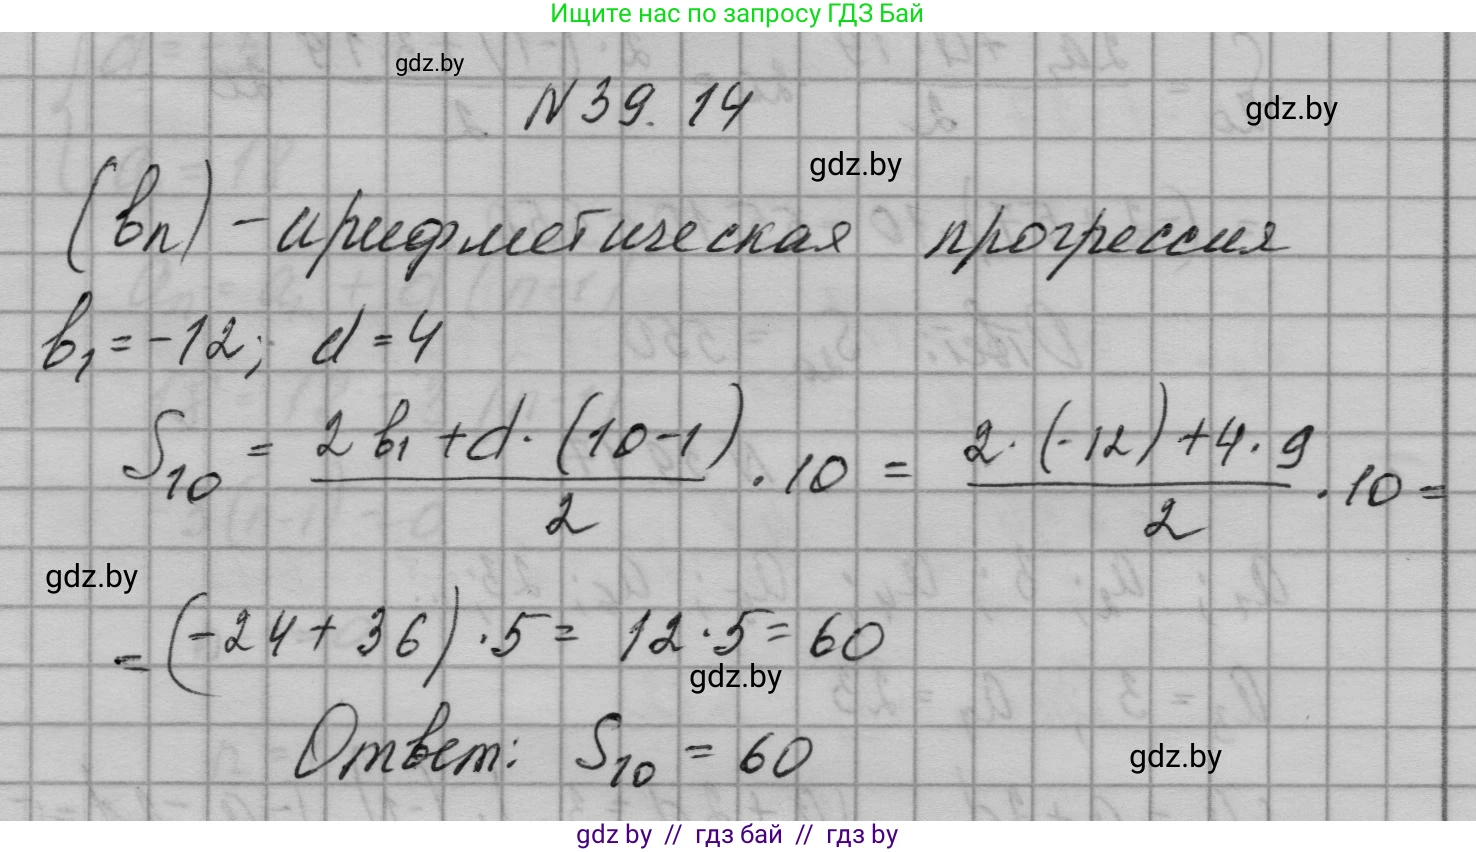 Ищите нас по запросу ГДЗ Бай
gdz.by
N 39. 14
gdz.by
gdz.by
(bn) - арифметическая прогрессия
b1 = -12; d = 4
S10 = (2b1 + d · (10-1))/2 · 10 = (2 · (-12) + 4 · 9)/2 · 10 =
gdz.by
= (-24 + 36) · 5 = 12 · 5 = 60
gdz.by
Ответ: S10 = 60
gdz.by
gdz by // гдз бай // гдз by